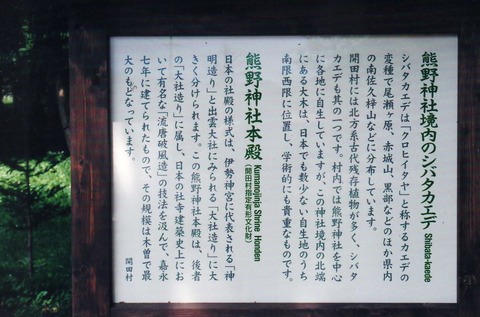 熊野神社境内のシバタカエデ Shibata-kaede
シバタカエデは「クロヒイタヤ」と称するカエデの
変種で尾瀬ヶ原、赤城山、黒部などのほか県内
の南佐久梓山などに分布しています。
開田村には北方系古代残存植物が多く、シバタ
カエデも其の一つです。村内では熊野神社を中心
に各地に自生していますが、この神社境内の北端
にある大木は、日本でも数少ない自生地のうち
南限西限に位置し、学術的にも貴重なものです。
熊野神社本殿 Kumanojinja Shrine Honden
(開田村指定有形文化財)
日本の社殿の様式は、伊勢神宮に代表される「神
明造り」と出雲大社にみられる「大社造り」に大
きく分けられます。この熊野神社本殿は、後者
の「大社造り」に属し、日本の社寺建築史上にお
いて有名な「流唐破風造」の技法を汲んで、嘉永
七年に建てられたもので、その規模は木曽で最
大のもとなっています。
開田村